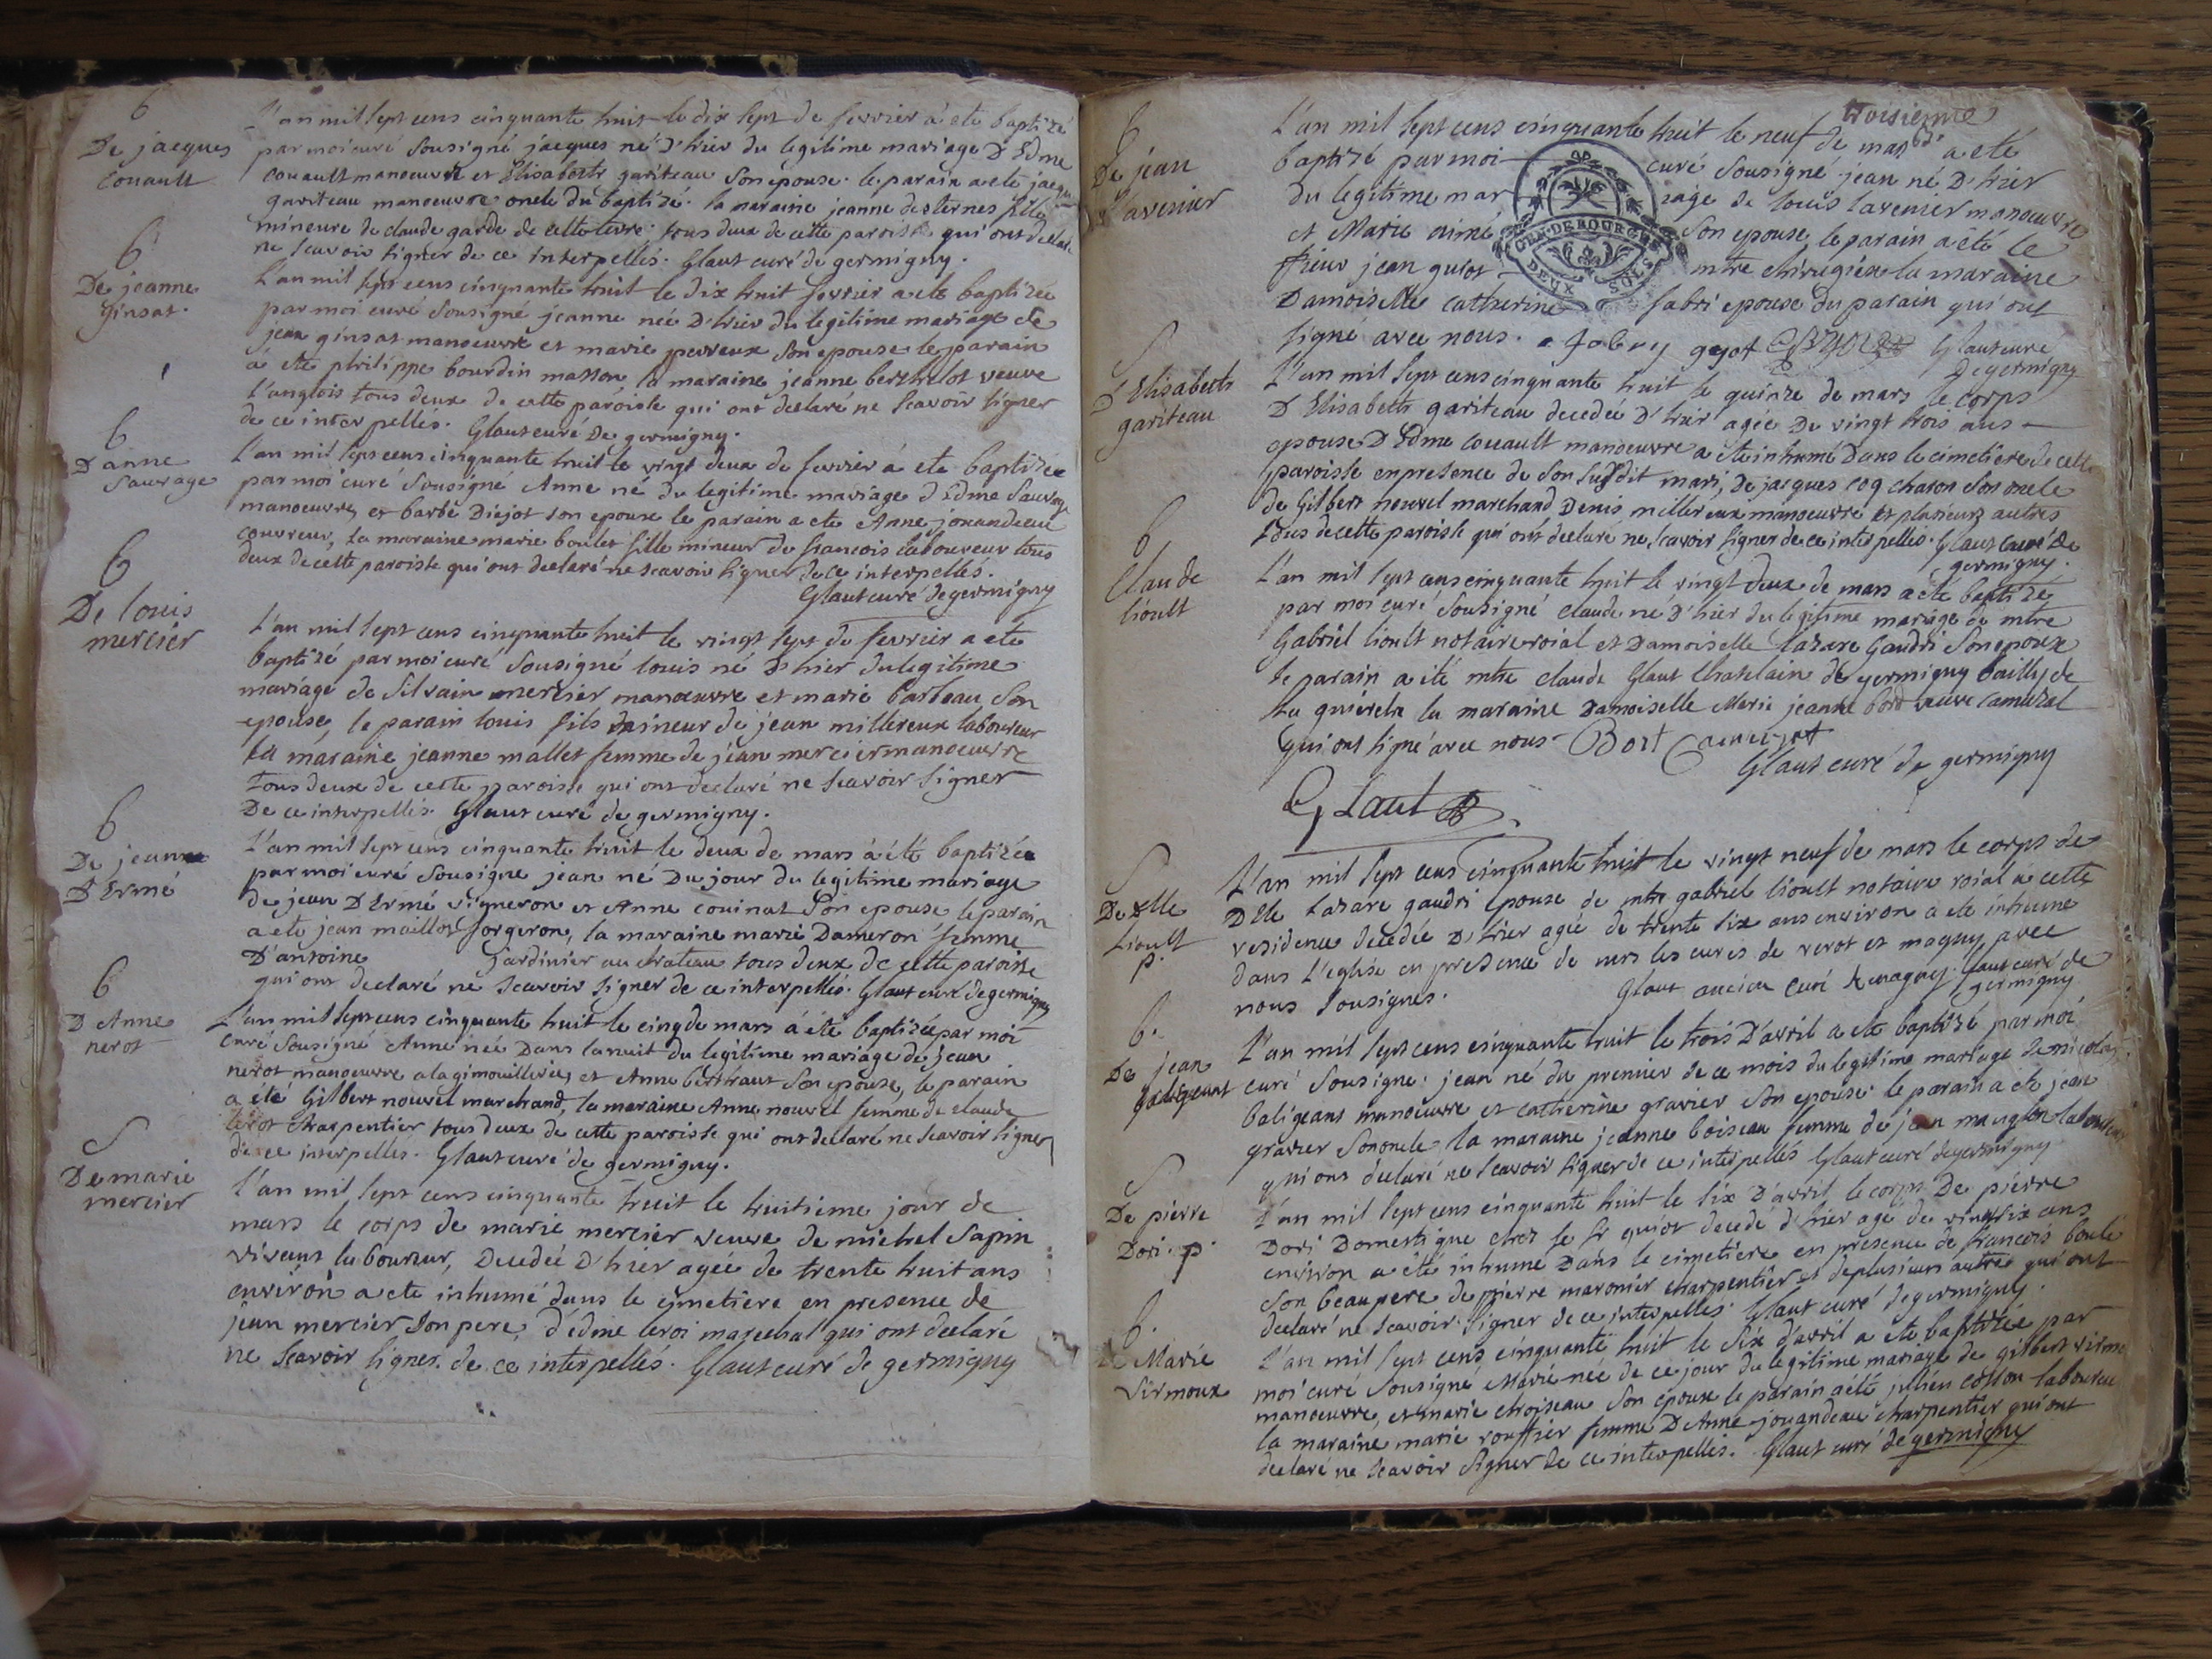 B
De jacques
Couault
L'an mil sept cens cinquante huit le dix sept de fevrier à été baptizé
par moi curé sousigné jacques né d'hier du legitime mariage d'Edme
couault manoeuvre et Elisabeth gariteau son epouse. le parain a ete jacques
gariteau manoeuvre oncle du baptizé. la maraine jeanne desternes fille
mineure de claude garde de cette terre. tous deux de cette paroisse qui ont declaré
ne scavoir signer de ce interpellés. Glaut curé de germigny.
B
De jeanne
Ginsat.
L'an mil sept cens cinquante huit le dix huit fevrier a ete baptizée
par moi curé sousigné jeanne née d'hier du legitime mariage de
jean ginsat manoeuvre et marie perreux son epouse le parain
à ete philippe bourdin masson la maraine jeanne berthelot veuve
l'anglois tous deux de cette paroisse qui ont declaré ne scavoir signer
de ce interpellés. Glaut curé de germigny.
B
D'anne
Sauvage
L'an mil sept cens cinquante huit le vingt deux de fevrier à ete baptizée
par moi curé sousigné Anne né du legitime mariage d'Edme Sauvage
manoeuvre et barbe Diejot son epouse le parain a ete Anne jouandeau
couvreur, la maraine marie boulet fille mineur de francois laboureur tous
deux de cette paroisse qui ont declaré ne scavoir signer de ce interpellés.
Glaut curé de germigny
B
De louis
mercier
L'an mil sept cens cinquante huit le vingt sept de fevrier a ete
baptizé par moi curé sousigné louis né d'hier du legitime
mariage de silvain mercier manoeuvre et marie barbeau son
epouse, le parain louis fils mineur de jean millereux laboureur
la maraine jeanne mallet femme de jean mercier manoeuvre
tous deux de cette paroisse qui ont declaré ne scavoir signer
De ce interpellés. Glaut curé de germigny.
B
De jean
D'Ermé
L'an mil sept cens cinquante huit le deux de mars à été baptizée
par moi curé sousigne jean né du jour du legitime mariage
de jean D'Ermé vigneron et Anne couinat son epouse le parain
a ete jean maillot forgeron, la maraine marie Dameron femme
D'antoine jardinier au chateau tous deux de cette paroisse
qui ont declaré ne scavoir signer de ce interpellés. Glaut curé de germigny
B
D'Anne
nerot
L'an mil sept cens cinquante huit le cinq de mars à été baptizée par moi
curé sousigné Anne née dans la nuit du legitime mariage de jean
nerot manoeuvre a la gimouillerie, et Anne bertraut son epouse, le parain
a été Gilbert nouvel marchand, la maraine Anne nouvel femme de claude
charpentier tous deux de cette paroisse qui ont declaré ne scavoir signer
de ce interpellés. Glaut curé de germigny.
S
De marie
mercier
L'an mil sept cens cinquante huit le huitieme jour de
mars le corps de marie mercier veuve de michel Sapin
vivant laboureur, decedée d'hier agée de trente huit ans
environ a ete inhumé dans le cimetiere en presence de
jean mercier son pere, d'edme leroi marechal qui ont declaré
ne scavoir signer de ce interpellés. Glaut curé de germigny
troisieme
B
De jean
lavenier
L'an mil sept cens cinquante huit le neuf de mars a ete
baptizé par moi curé sousigné jean né d'hier
du legitime mariage de louis lavenier manoeuvre
et Marie aimé son epouse, le parain a été le
sieur jean guiot mtre chirugien la maraine
Damoiselle catherine fabri epouse du parain qui ont
signé avec nous. fabry gyot Glaut curé
de germigny
GEN. DE BOURGES
DEUX SOLS
S
D'Elisabeth
gariteau
L'an mil sept cens cinquante huit le quinze de mars le corps
D'Elisabeth gariteau decedée d'hier agée de vingt trois ans
epouse d'Edme couault manoeuvre a ete inhumé dans le cimetiere de cette
paroisse en presence de son susdit mari, de jacques coq charon son oncle
de Gilbert nouvel marchand Denis millereux manoeuvre et plusieurs autres
tous de cette paroisse qui ont declaré ne scavoir signer de ce interpellés. Glaut curé de
germigny.
B
Claude
lioult
L'an mil sept cens cinquante huit le vingt deux de mars a ete baptizé
par moi curé sousigné claude né d'hier du legitime mariage de mtre
Gabriel lioult notaire roial et Damoiselle lazare Gaudri son epouse
le parain a été mtre claude Glaut chatelain de germigny bailly de
la guierche la maraine Damoiselle Marie jeanne bord veuve
qui ont signé avec nous. Bort
Glaut curé de germigny
Glaut
S
De Delle
Lioult
p.
L'an mil sept cens cinquante huit le vingt neuf de mars le corps de
Delle Lazare gaudri epouse de mtre gabriel lioult notaire roial a cette
residence decedée d'hier agée de trente six ans environ a ete inhume
dans l'eglise en presence de mrs les cures de verot et magny avec
nous sousignes. Glaut ancien curé de magny. Glaut curé de
germigny
B.
De jean
baligeant
L'an mil sept cens cinquante huit le trois d'avril a ete baptizé par moi
curé sousigne. jean né du premier de ce mois du legitime mariage de nicolas
baligeant manoeuvre et catherine gravier son epouse. le parain a ete jean
gravier son oncle la maraine jeanne boiseau femme de jean laboureur
qui ont declaré ne scavoir signer de ce interpellés Glaut curé de germigny
S
De pierre
Dori. p.
L'an mil sept cens cinquante huit le six d'avril le corps de pierre
Dori Domestique chez le sr guiot decedé d'hier agé de vingt six ans
environ a été inhumé dans le cimetiere en presence de francois boulé
son beaupere de pierre maronier charpentier et de plusieurs autre qui ont
declaré ne scavoir signer de ce interpellés. Glaut curé de germigny.
B.
De Marie
Virmoux
L'an mil sept cens cinquante huit le six d'avril a ete baptizée par
moi curé sousigné Marie née de ce jour du legitime mariage de gilbert virmoux
manoeuvre, et marie choiseau son epouse le parain a été julien cosson laboureur
la maraine marie rouffier femme d'Anne jouandeau charpentier qui ont
declaré ne scavoir signer de ce interpellés. Glaut curé de germigny